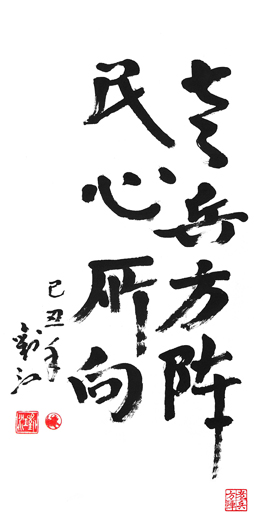 老兵方阵
民心所向
己丑年
劉江